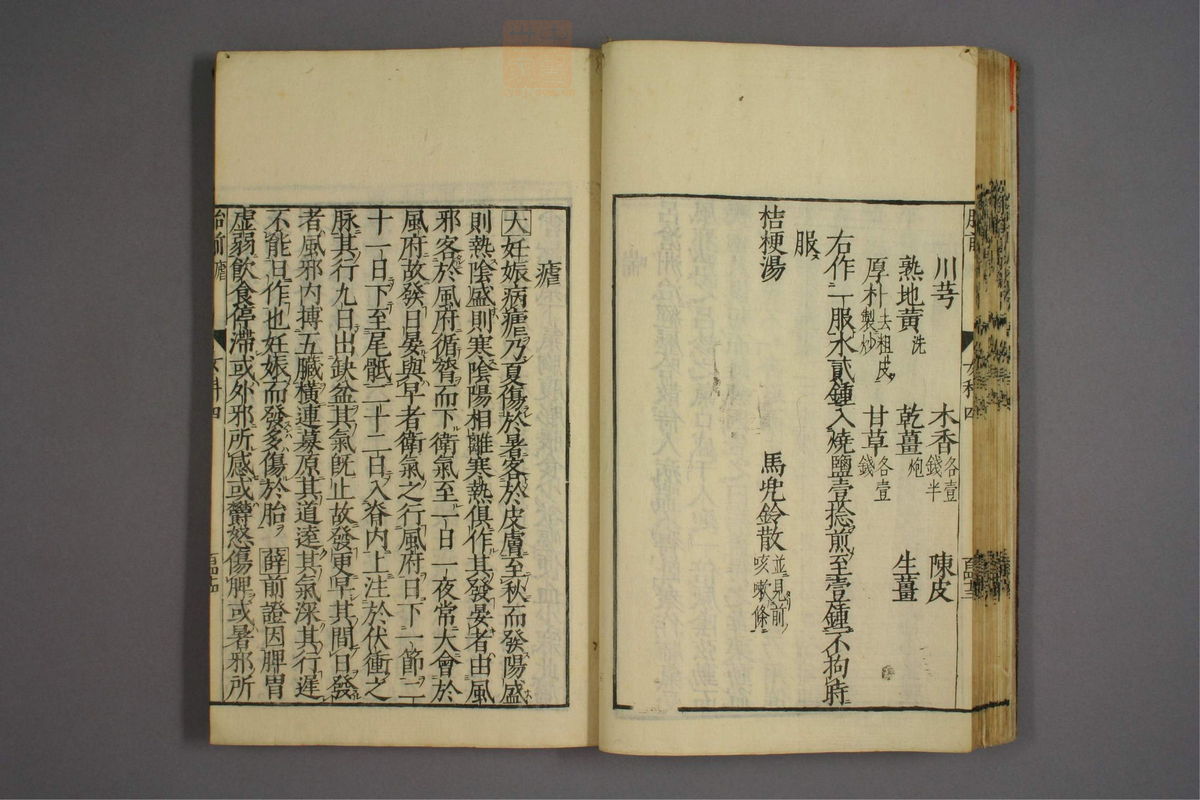 川芎　木香各壹錢半　陳皮
熟地黃洗　乾薑炮　生薑
厚朴去粗皮製炒　甘草各壹錢
右作一服水貳鍾入燒鹽壹捻煎至壹鍾不拘時
服
桔梗湯　馬兜鈴散並見前咳嗽條
瘧
大妊娠病瘧乃夏傷於暑客於皮膚至秋而發陽盛
則熱陰盛則寒陰陽相離寒熱俱作其發晏者由風
邪客於風府循膂而下衛氣至一日一夜常大會於
風府故發日晏與早者衛氣之行風府日下一節二
十一日下至尾骶二十二日入脊内上注於伏衝之
脉其行九日出缺盆其氣旣止故發更早其間日發
者風邪内搏五臟橫連募原其道遠其氣深其行遲
不能日作也妊娠而發多傷於胎　薛前證因脾胃
虛弱飲食停滯或外邪所感或欝怒傷脾或暑邪所
胎前　瘧　女科四